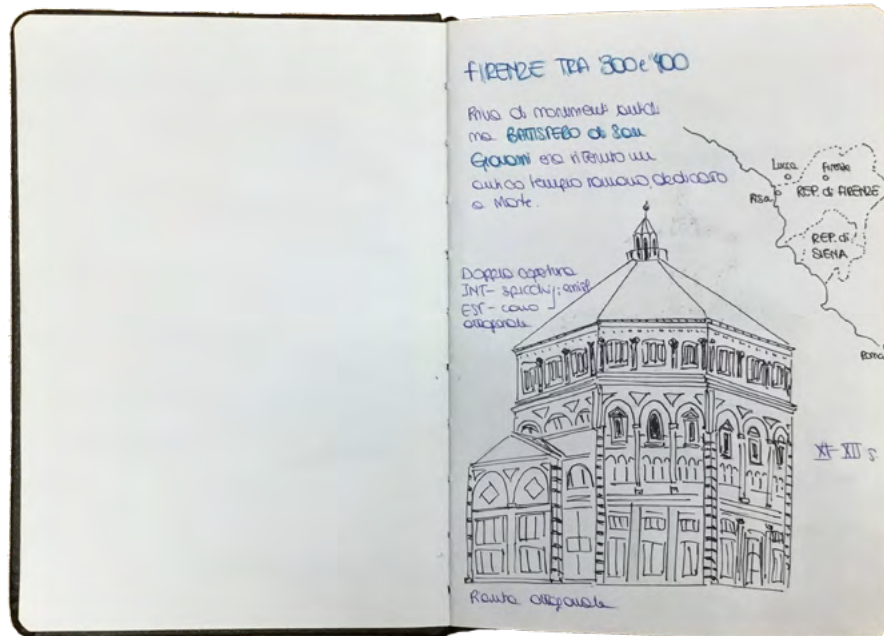 FIRENZE TRA '300 e '400
Priva di monumenti antichi
ma BATTISTERO di San
Giovanni era ritenuto un
antico tempio romano, dedicato
a Marte.
Lucca
Firenze
Pisa
REP. di FIRENZE
REP. di
SIENA
Roma
Doppia copertura
INT- spicchi;
EST- cono
ottagonale
XI-XII s
Pianta ottagonale